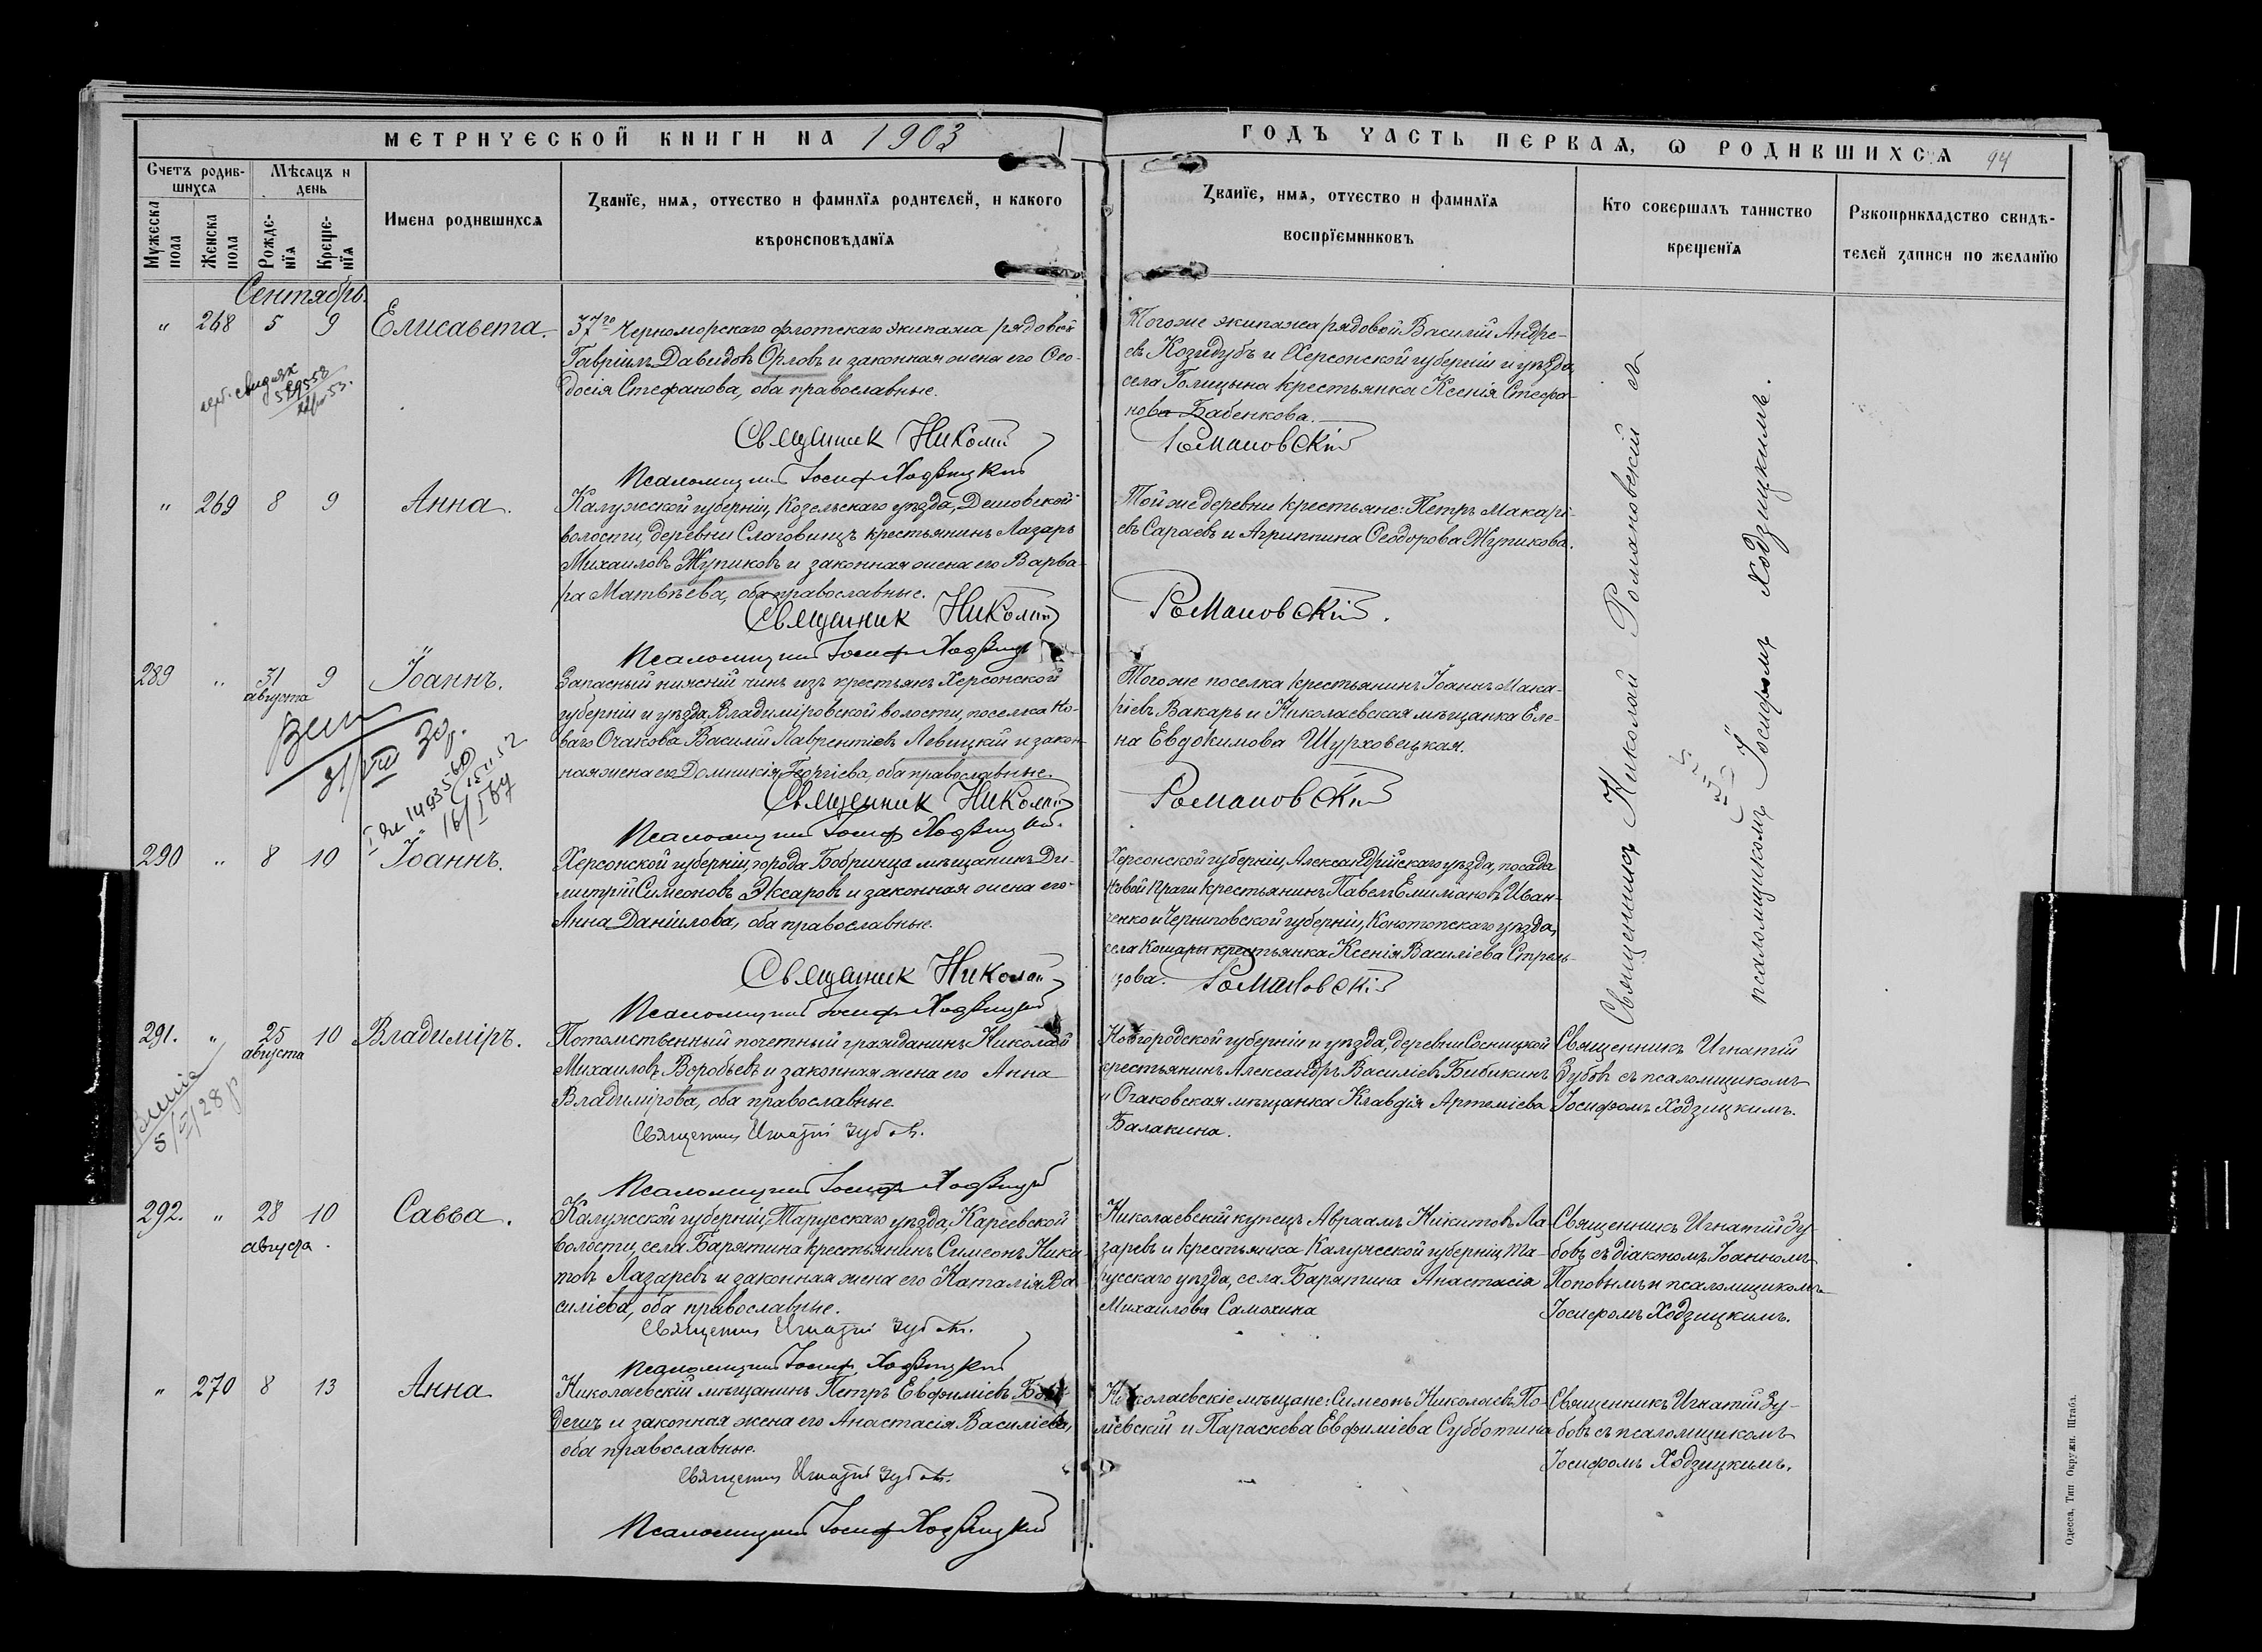 МЕТРИЧЕСКОЙ КНИГИ НА 1903
ГОДЪ ЧАСТЬ ПЕРВАЯ, Ѡ РОДИВШИХСЯ 94
Счетъ родив-
шихся
Мѣсяцъ и
день
Мужеска
пола
Женска
пола
Рожде-
нїя
Креще-
нїя
Имена родившихся
Званїе, имя, отчество и фамилїя родителей, и какого
вѣроисповѣданїя
Званїе, имя, отчество и фамилїя
воспрїемниковъ
Кто совершалъ таинство
крещенїя
Рукоприкладство свидѣ-
телей записи по желанїю
Сентябрь.
" 268 5 9 Елисавета.
37го Черноморскаго флотскаго экипажа рядовой
Гавріилъ Давидовъ Орловъ и законная жена его Ѳео-
досія Стефанова, оба православные.
Священник Николай
Псаломщикъ Іосиф Ходзицкий
Того же экипажа рядовой Василій Андре-
евъ Козидубъ и Херсонской губерніи и уѣзда,
села Голицына крестьянка Ксенія Стефа-
нова Бабенкова.
Романовскій
" 269 8 9 Анна.
Калужской губерніи, Козельскаго уѣзда, Дешовской
волости, деревни Слаговищъ крестьянинъ Лазарь
Михаиловъ Жупиковъ и законная жена его Варва-
ра Матвѣева, оба православные.
Священник Николай
Псаломщикъ Іосиф Ходзицкий
Той же деревни крестьяне: Петръ Макарі-
евъ Сараевъ и Агриппина Ѳеодорова Жупикова.
Романовскій.
289 " 31 августа 9 Іоаннъ.
Запасный нижній чинъ изъ крестьянъ Херсонской
губерніи и уѣзда, Владиміровской волости, поселка Но-
ваго Очакова Василій Лаврентіевъ Левицкій и закон-
ная жена его Домникія Георгіева, оба православные.
Священник Николай
Псаломщикъ Іосиф Ходзицкий
Того же поселка крестьянинъ Іоаннъ Мака-
ріевъ Вакарь и Николаевская мѣщанка Еле-
на Евдокимова Шурховецкая.
Романовскій
290 " 8 10 Іоаннъ.
Херсонской губерніи, города Бобринца мѣщанинъ Ди-
митрій Симеоновъ Эксаровъ и законная жена его
Анна Даніилова, оба православные.
Священник Николай
Псаломщикъ Іосиф Ходзицкий
Херсонской губерніи, Александрійскаго уѣзда, посада
Новой Праги крестьянинъ Павелъ Емиліановъ Иван-
ченко и Черниговской губерніи, Конотопскаго уѣзда,
села Кошары крестьянка Ксенія Василіева Стрель-
цова.
Романовскій
Священникъ Николай Романовскій съ
псаломщикомъ Іосифомъ Ходзицкимъ.
291. " 25 августа 10 Владиміръ.
Потомственный почетный гражданинъ Николай
Михаиловъ Воробьевъ и законная жена его Анна
Владимірова, оба православные.
Священник Игнатій Зубовъ.
Псаломщикъ Іосиф Ходзицкий
Новгородской губерніи и уѣзда, деревни Сосницкой
крестьянинъ Александръ Василіевъ Бибикинъ
и Очаковская мѣщанка Клавдія Артеміева
Балакина.
Священникъ Игнатій
Зубовъ съ псаломщикомъ
Іосифомъ Ходзицкимъ.
292. " 28 августа 10 Савва.
Калужской губерніи, Тарусскаго уѣзда, Кареевской
волости, села Барятина крестьянинъ Симеонъ Ники-
товъ Лазаревъ и законная жена его Наталія Ва-
силіева, оба православные.
Священник Игнатій Зубовъ.
Псаломщикъ Іосиф Ходзицкий
Николаевскій купецъ Авраамъ Никитовъ Ла-
заревъ и крестьянка Калужской губерніи, Та-
русскаго уѣзда, села Барятина Анастасія
Михаилова Самохина
Священникъ Игнатій Зу-
бовъ съ діакономъ Іоанномъ
Поповымъ и псаломщикомъ
Іосифомъ Ходзицкимъ.
" 270 8 13 Анна
Николаевскій мѣщанинъ Петръ Евфиміевъ
и законная жена его Анастасія Василіева,
оба православные.
Священник Игнатій Зубовъ.
Псаломщикъ Іосиф Ходзицкий
Николаевскіе мѣщане: Симеонъ Николаевъ По-
ліевскій и Параскева Евфиміева Субботина
Священникъ Игнатій Зу-
бовъ съ псаломщикомъ
Іосифомъ Ходзицкимъ.
Одесса, Тип Окружн. Штаба.